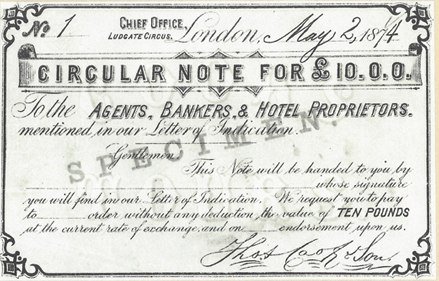 No. 1 CHIEF OFFICE, LUDGATE CIRCUS, London, May 2, 1874
CIRCULAR NOTE FOR £10.0.0.
To the AGENTS, BANKERS, & HOTEL PROPRIETORS.
mentioned in our Letter of Indication.
SPECIMEN.
Gentlemen:
This Note will be handed to you by
whose signature
you will find in our Letter of Indication. We request you to pay
to order without any deduction the value of TEN POUNDS
at the current rate of exchange, and on endorsement upon us.
Thos Cook & Son